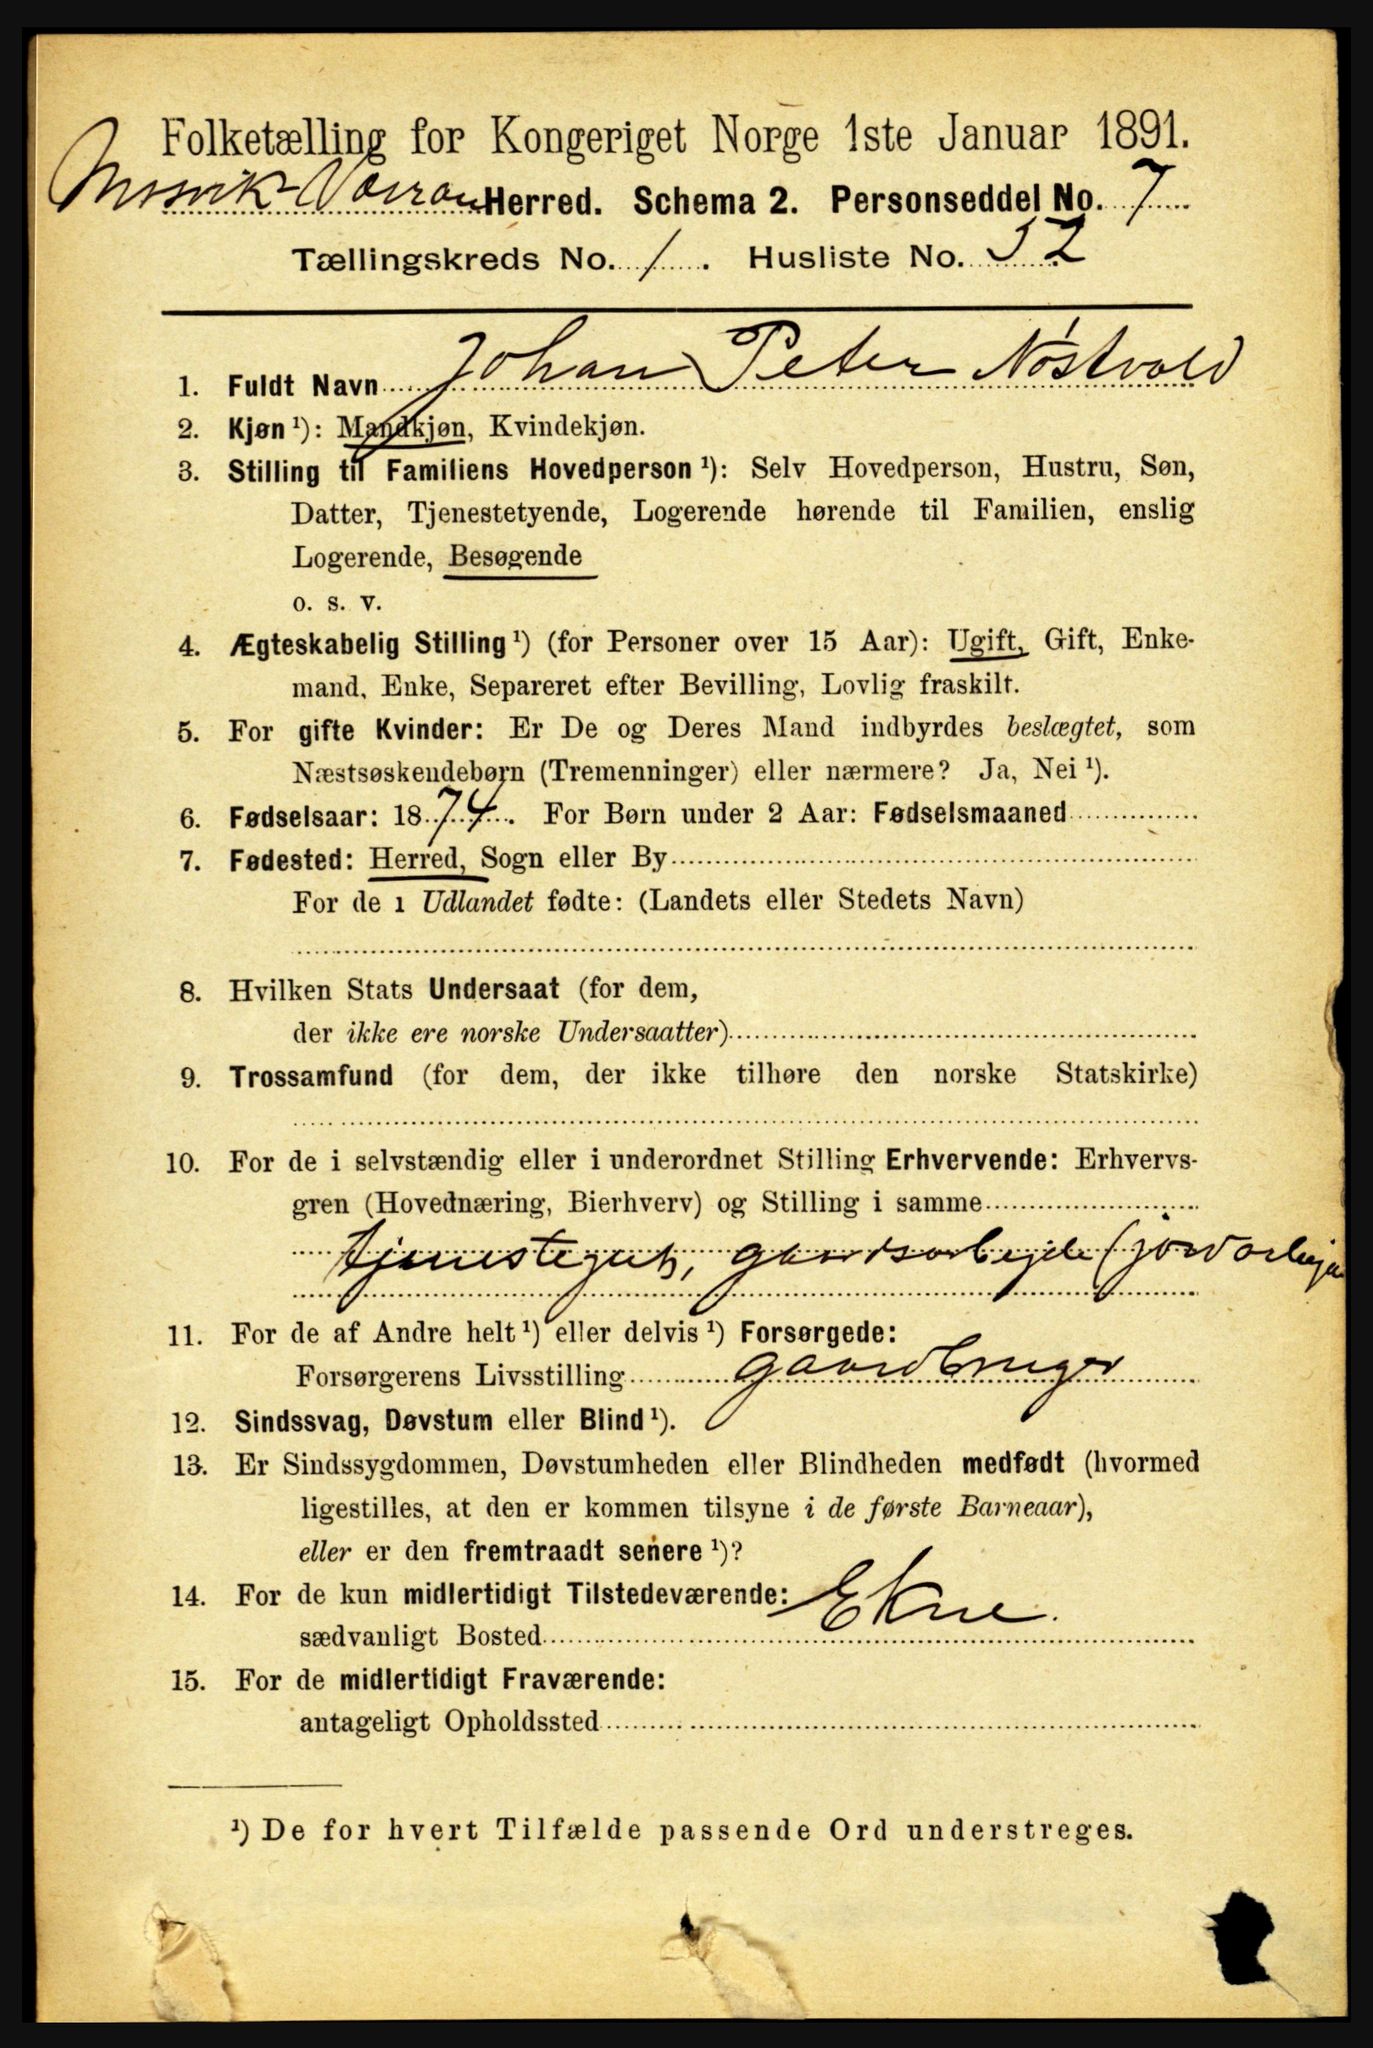 Folketælling for Kongeriget Norge 1ste Januar 1891.
Mosvik-Værran Herred. Schema 2. Personseddel No. 7
Tællingskreds No. 1. Husliste No. 52
1. Fuldt Navn Johan Peter Nøstvold
2. Kjøn ¹): Mandkjøn, Kvindekjøn.
3. Stilling til Familiens Hovedperson ¹): Selv Hovedperson, Hustru, Søn,
Datter, Tjenestetyende, Logerende hørende til Familien, enslig
Logerende, Besøgende
o. s. v.
4. Ægteskabelig Stilling ¹) (for Personer over 15 Aar): Ugift, Gift, Enke-
mand, Enke, Separeret efter Bevilling, Lovlig fraskilt.
5. For gifte Kvinder: Er De og Deres Mand indbyrdes beslægtet, som
Næstsøskendebørn (Tremenninger) eller nærmere? Ja, Nei ¹).
6. Fødselsaar: 1874. For Børn under 2 Aar: Fødselsmaaned
7. Fødested: Herred, Sogn eller By
For de i Udlandet fødte: (Landets eller Stedets Navn)
8. Hvilken Stats Undersaat (for dem,
der ikke ere norske Undersaatter)
9. Trossamfund (for dem, der ikke tilhøre den norske Statskirke)
10. For de i selvstændig eller i underordnet Stilling Erhvervende: Erhvervs-
gren (Hovednæring, Bierhverv) og Stilling i samme
tjenestegut, gaardsarbejde (jordarbeja
11. For de af Andre helt ¹) eller delvis ¹) Forsørgede:
Forsørgerens Livsstilling gaardbruger
12. Sindssvag, Døvstum eller Blind ¹).
13. Er Sindssygdommen, Døvstumheden eller Blindheden medfødt (hvormed
ligestilles, at den er kommen tilsyne i de første Barneaar),
eller er den fremtraadt senere ¹)?
14. For de kun midlertidigt Tilstedeværende:
sædvanligt Bosted Ekne.
15. For de midlertidigt Fraværende:
antageligt Opholdssted
¹) De for hvert Tilfælde passende Ord understreges.